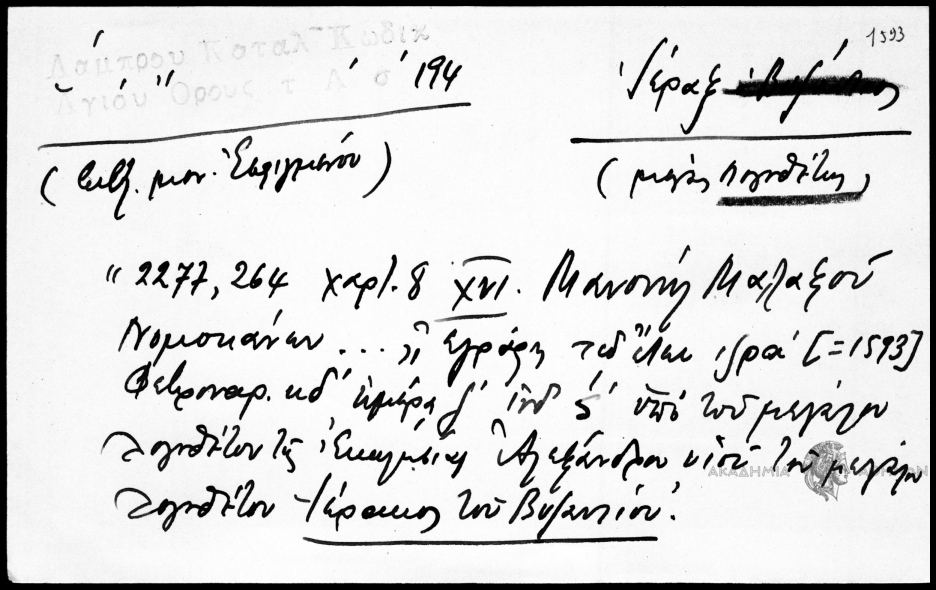 1593
Λάμπρου Καταλ Κώδικ
Ἁγίου Ὄρους τ. Α' σ' 194
Ἱέραξ
(βιβλ. μον. Ἐσφιγμένου)
(μεγας λογοθέτης)
"2277, 264 χαρτ. 8 XVI. Μανουὴλ Μαλαξοῦ
Νομοκάνων ... ἐγράφη τῷ ἔτει ζρα' [=1593]
Φεβρουαρ. κδ' ἡμέρα ζ' ἰνδ ς' ὑπὸ τοῦ μεγάλου
λογοθέτου τῆς Ἐκκλησίας Ἀλεξάνδρου υἱοῦ τοῦ μεγάλου
λογοθέτου Ἱέρακος τοῦ Βυζαντίου.
ΑΚΑΔΗΜΙΑ ΑΘΗΝΩΝ